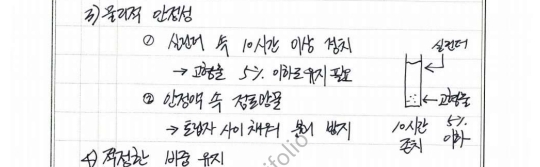 3) 물리적 안정성
① 실린더 속 10시간 이상 정치
→ 고형률 5% 이하로 유지 필요
② 안정액 속 점토광물
→ 토립자 사이 채워 붕괴 방지
실린더
고형률
10시간 5%
정치 이하
4) 적정한 비중 유지
folio